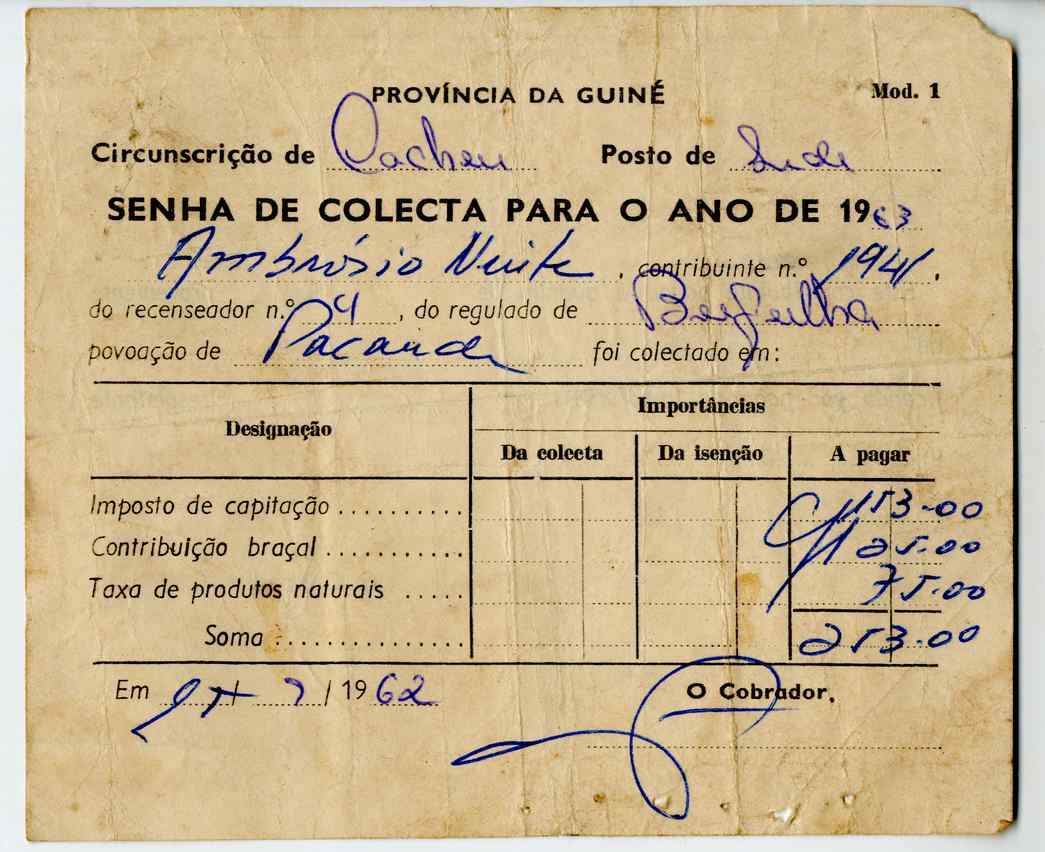 PROVÍNCIA DA GUINÉ Mod. 1
Circunscrição de Cacheu Posto de
SENHA DE COLECTA PARA O ANO DE 1963
Ambrósio , contribuinte n.º 1941,
do recenseador n.º 4 , do regulado de
povoação de foi colectado em:
Designação
Importâncias
Da colecta Da isenção A pagar
Imposto de capitação .......... 153.00
Contribuição braçal ........... 25.00
Taxa de produtos naturais ..... 75.00
Soma .............. 253.00
Em / 7 / 1962 O Cobrador,